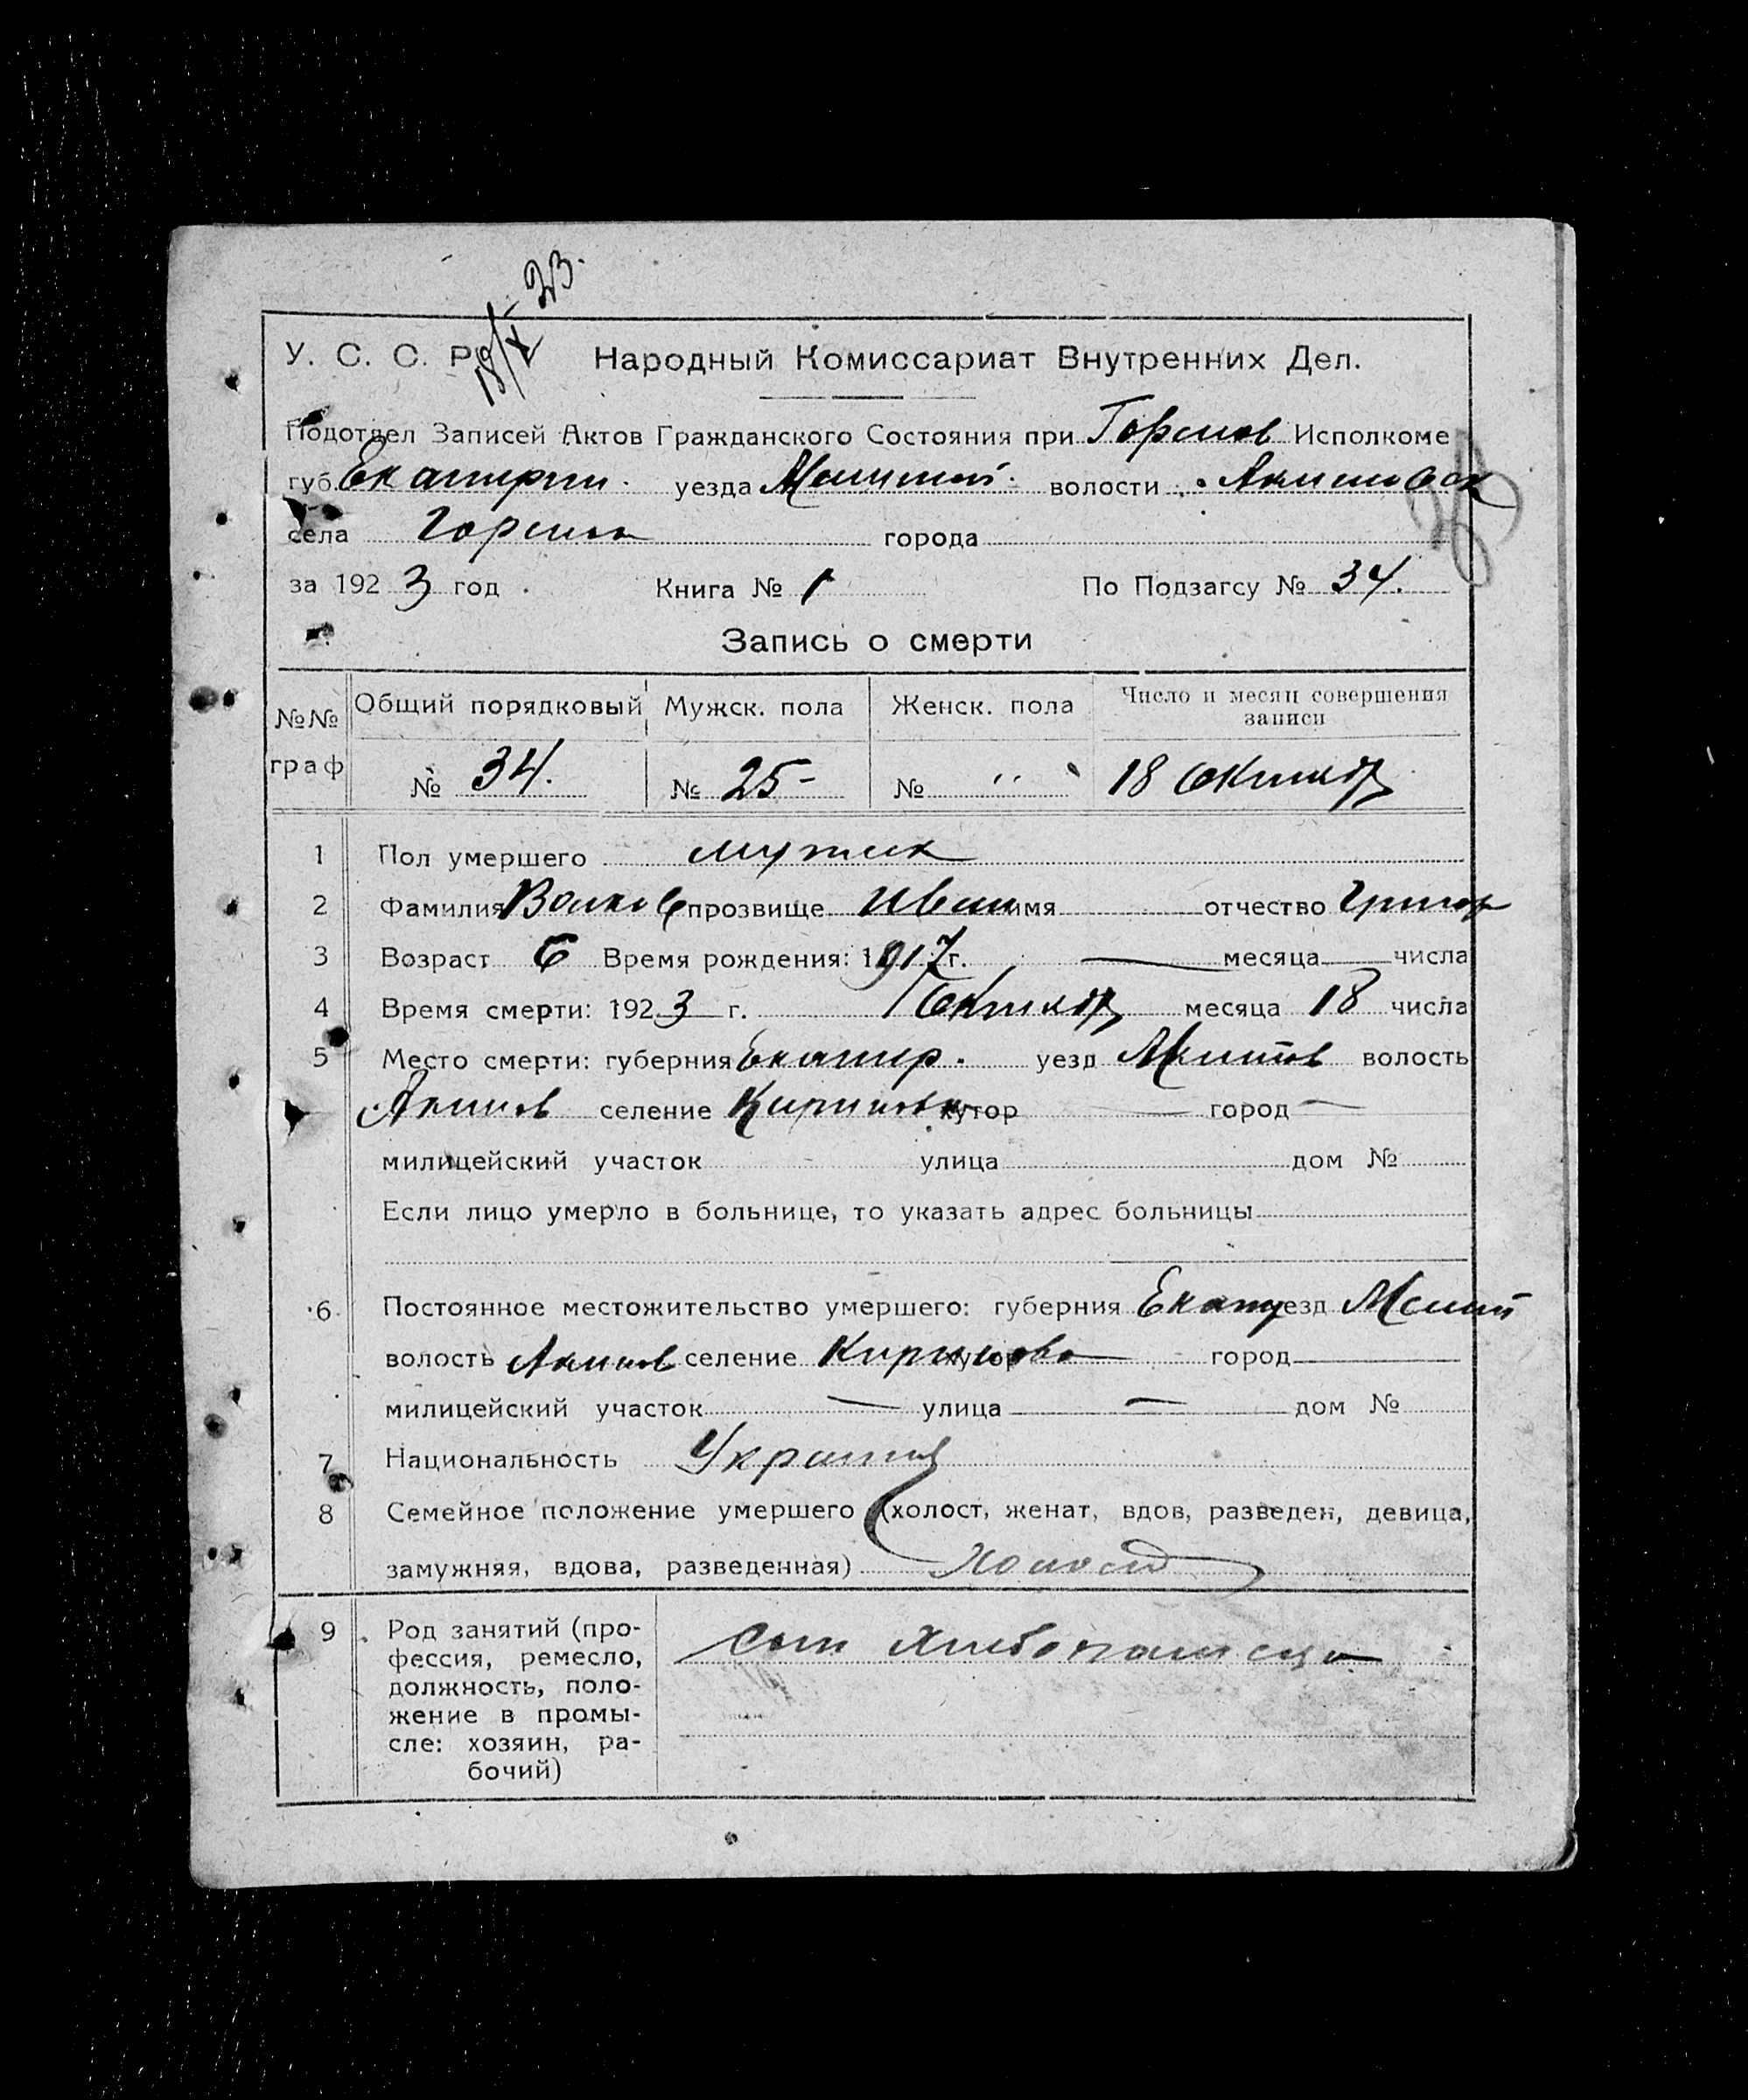 18/X 23.
У. С. С. Р. Народный Комиссариат Внутренних Дел.
Подотдел Записей Актов Гражданского Состояния при Исполкоме
губ. уезда волости
села города
за 1923 год Книга № 1 По Подзагсу № 34.
Запись о смерти
№№ граф Общий порядковый Мужск. пола Женск. пола Число и месяц совершения записи
№ 34. № 25 № " 18 Октябр
1 Пол умершего мужск
2 Фамилия Волков прозвище Иван имя отчество Григор
3 Возраст 6 Время рождения: 1917 г. — месяца — числа
4 Время смерти: 1923 г. Октябр месяца 18 числа
5 Место смерти: губерния Екатер. уезд волость
Акимов селение хутор — город —
милицейский участок улица дом №
Если лицо умерло в больнице, то указать адрес больницы
6 Постоянное местожительство умершего: губерния Екат уезд Мелит
волость Акимов селение хутор — город —
милицейский участок — улица — дом №
7 Национальность Украинец
8 Семейное положение умершего (холост, женат, вдов, разведен, девица,
замужняя, вдова, разведенная) Холост
9 Род занятий (про- сын хлебопашца
фессия, ремесло,
должность, поло-
жение в промы-
сле: хозяин, ра-
бочий)